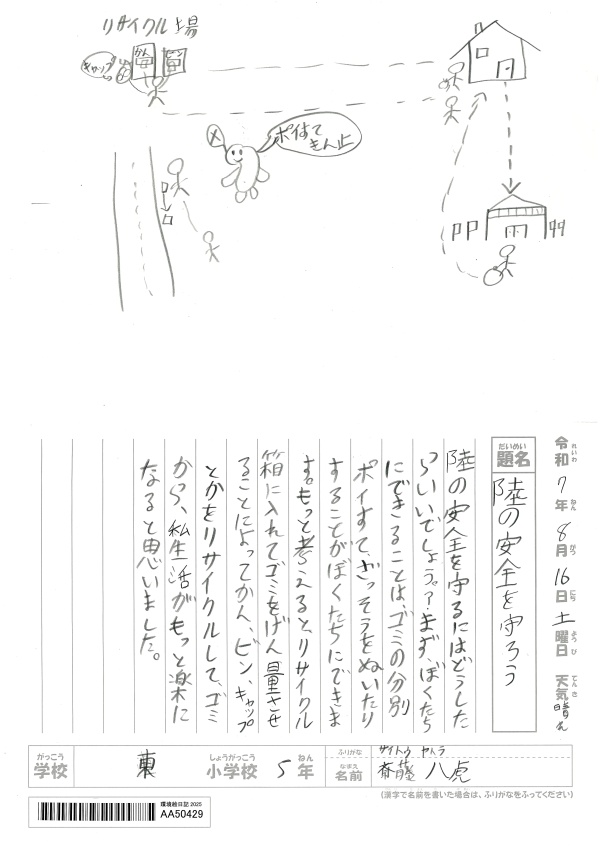 リサイクル場
キャップ
かん
ポイすて
きん止
令和7年8月16日土曜日 天気晴れ
れいわ ねん がつ にち ようび てんき
だいめい
題名
陸の安全を守ろう
陸の安全を守るにはどうした
らいいでしょうか?まず、ぼくたち
にできることは、ゴミの分別
ポイすて、ざっそうをぬいたり
することがぼくたちにできま
す。もっと考えると、リサイクル
箱に入れてゴミをげん量させ
ることによってかん、ビン、キャップ
とかをリサイクルして、ゴミ
かつら、私生活がもっと楽に
なると思いました。
がっこう
学校
東
しょうがっこう
小学校
5
ねん
年
ふりがな
サイトウ ヤトラ
なまえ
名前
斎藤 八虎
(漢字で名前を書いた場合は、ふりがなをふってください)
環境絵日記 2025
AA50429